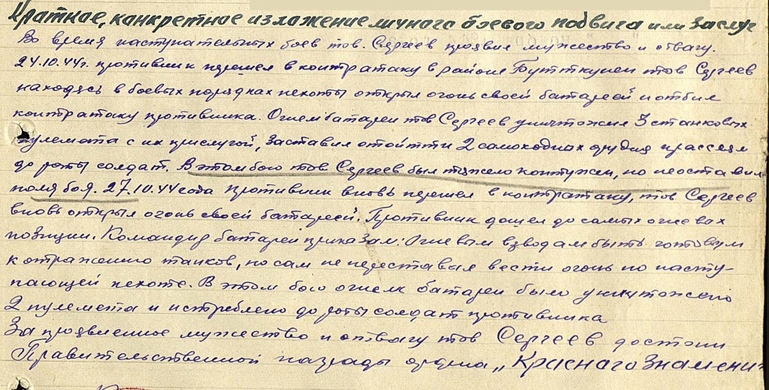 Краткое, канкретное излажение личнага боевого подвига или заслуг
Во время наступательных боев тов. Сергеев проявил мужество и отвагу.
24.10.44г. противник перешел в контратаку в районе Бутткунен тов Сергеев
находясь в боевых порядках пехоты открыл огонь своей батареей и отбил
контратаку противника. Огнем батареи тов Сергеев уничтожил 3 станковых
пулемета с их прислугой, заставил отойтти 2 самоходных орудия и рассеял
до роты солдат. В этом бою тов Сергеев был тяжело контужен, но не оставил
поля боя. 27.10.44 года противник вновь перешел в контратаку, тов Сергеев
вновь открыл огонь своей батареей. Противник дошел до самых огневых
позиции. Командир батареи приказал: Огневым взводам быть готовым
к отражению танков, но сам не переставал вести огонь по насту-
пающей пехоте. В этом бою огнем батареи было уничтожено
2 пулемета и истреблено до роты солдат противника
За проявленное мужество и отвагу тов Сергеев достоин
Правительственной награды ордена „Краснага Знамени"